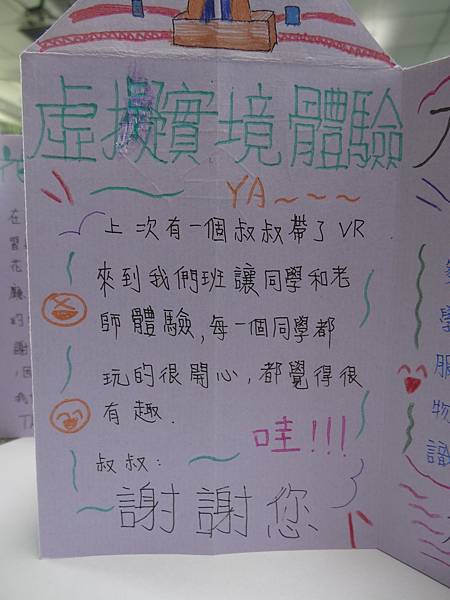 虛擬實境體驗
YA~~~
上次有一個叔叔帶了VR
來到我們班讓同學和老
師體驗,每一個同學都
玩的很開心,都覺得很
有趣.
哇!!!
叔叔:
謝謝您